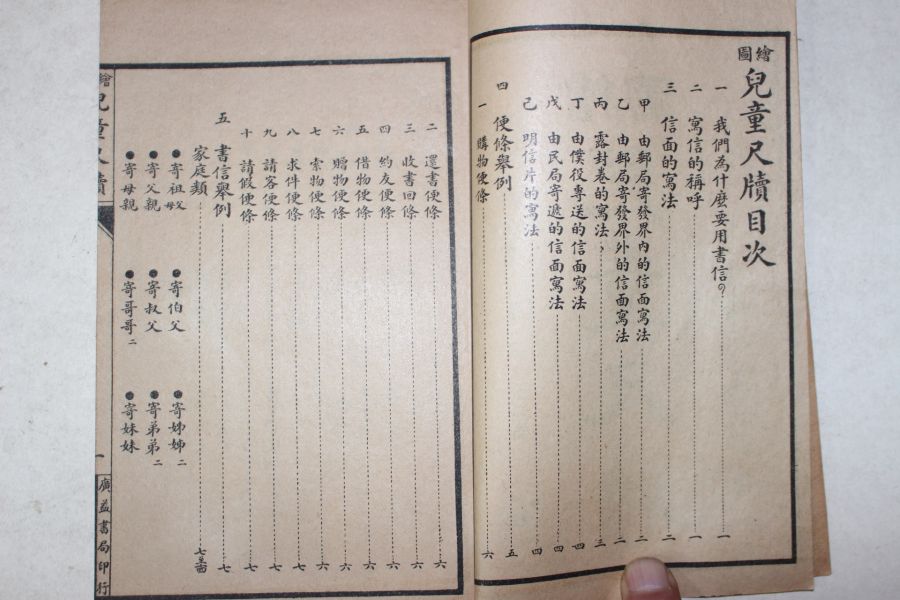 繪圖
兒童尺牘目次
一 我們為什麼要用書信?……一
二 寫信的稱呼……一
三 信面的寫法……二
甲 由郵局寄發界內的信面寫法……二
乙 由郵局寄發界外的信面寫法……二
丙 露封卷的寫法……三
丁 由僕役專送的信面寫法……四
戊 由民局寄遞的信面寫法……四
己 明信片的寫法……四
四 便條舉例……五
一 購物便條……六
二 還書便條……六
三 收書回條……六
四 約友便條……六
五 借物便條……六
六 贈物便條……六
七 索物便條……六
八 求件便條……七
九 請客便條……七
十 請假便條……七
五 書信舉例……七
家庭類……
●寄祖父母 ●寄伯父 ●寄姊姊二
●寄父親 ●寄叔父 ●寄弟弟二
●寄母親 ●寄哥哥二 ●寄妹妹
繪
兒童尺牘
一
廣益書局印行